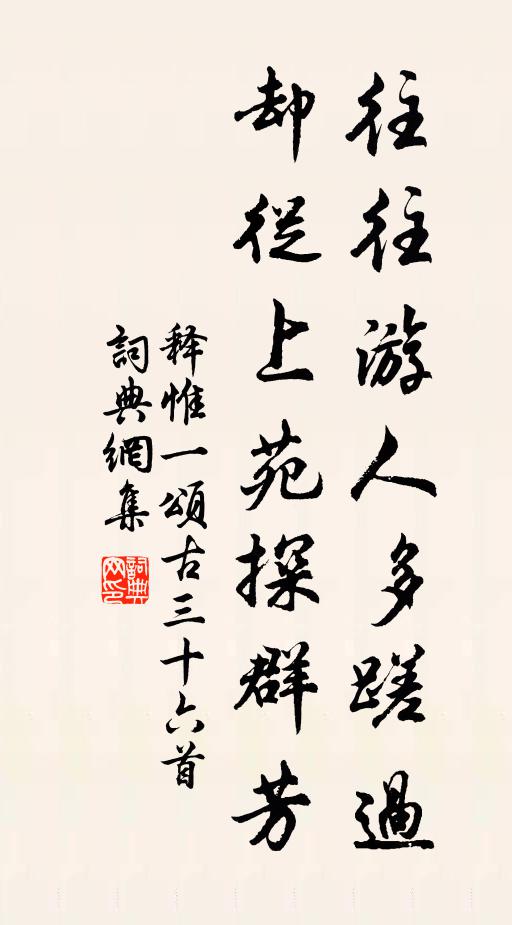 往往游人多蹉過
却從上苑探群芳
释惟一頌古三十六首
詞典網集
詞典网印